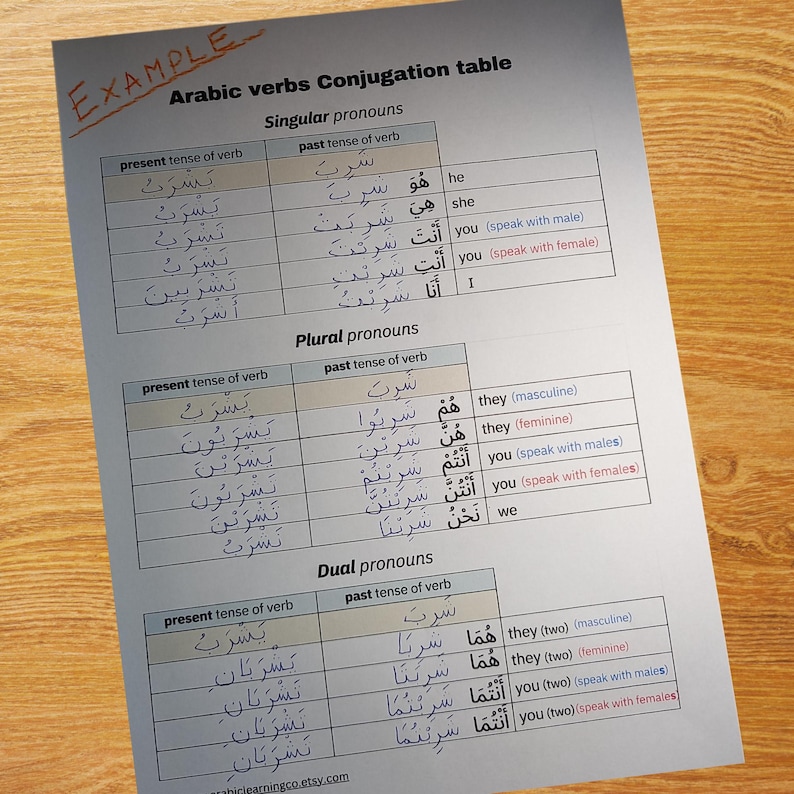 EXAMPLE
Arabic verbs Conjugation table
Singular pronouns
present tense of verb past tense of verb
يَشْرَبُ شَرِبَ
يَشْرَبُ شَرِبَ هُوَ he
تَشْرَبُ شَرِبَتْ هِيَ she
تَشْرَبُ شَرِبْتَ أَنْتَ you (speak with male)
تَشْرَبِينَ شَرِبْتِ أَنْتِ you (speak with female)
أَشْرَبُ شَرِبْتُ أَنَا I
Plural pronouns
present tense of verb past tense of verb
يَشْرَبُ شَرِبَ
يَشْرَبُونَ شَرِبُوا هُمْ they (masculine)
يَشْرَبْنَ شَرِبْنَ هُنَّ they (feminine)
تَشْرَبُونَ شَرِبْتُمْ أَنْتُمْ you (speak with males)
تَشْرَبْنَ شَرِبْتُنَّ أَنْتُنَّ you (speak with females)
نَشْرَبُ شَرِبْنَا نَحْنُ we
Dual pronouns
present tense of verb past tense of verb
يَشْرَبُ شَرِبَ
يَشْرَبَانِ شَرِبَا هُمَا they (two) (masculine)
تَشْرَبَانِ شَرِبَتَا هُمَا they (two) (feminine)
تَشْرَبَانِ شَرِبْتُمَا أَنْتُمَا you (two) (speak with males)
تَشْرَبَانِ شَرِبْتُمَا أَنْتُمَا you (two) (speak with females)
arabiclearningco.etsy.com